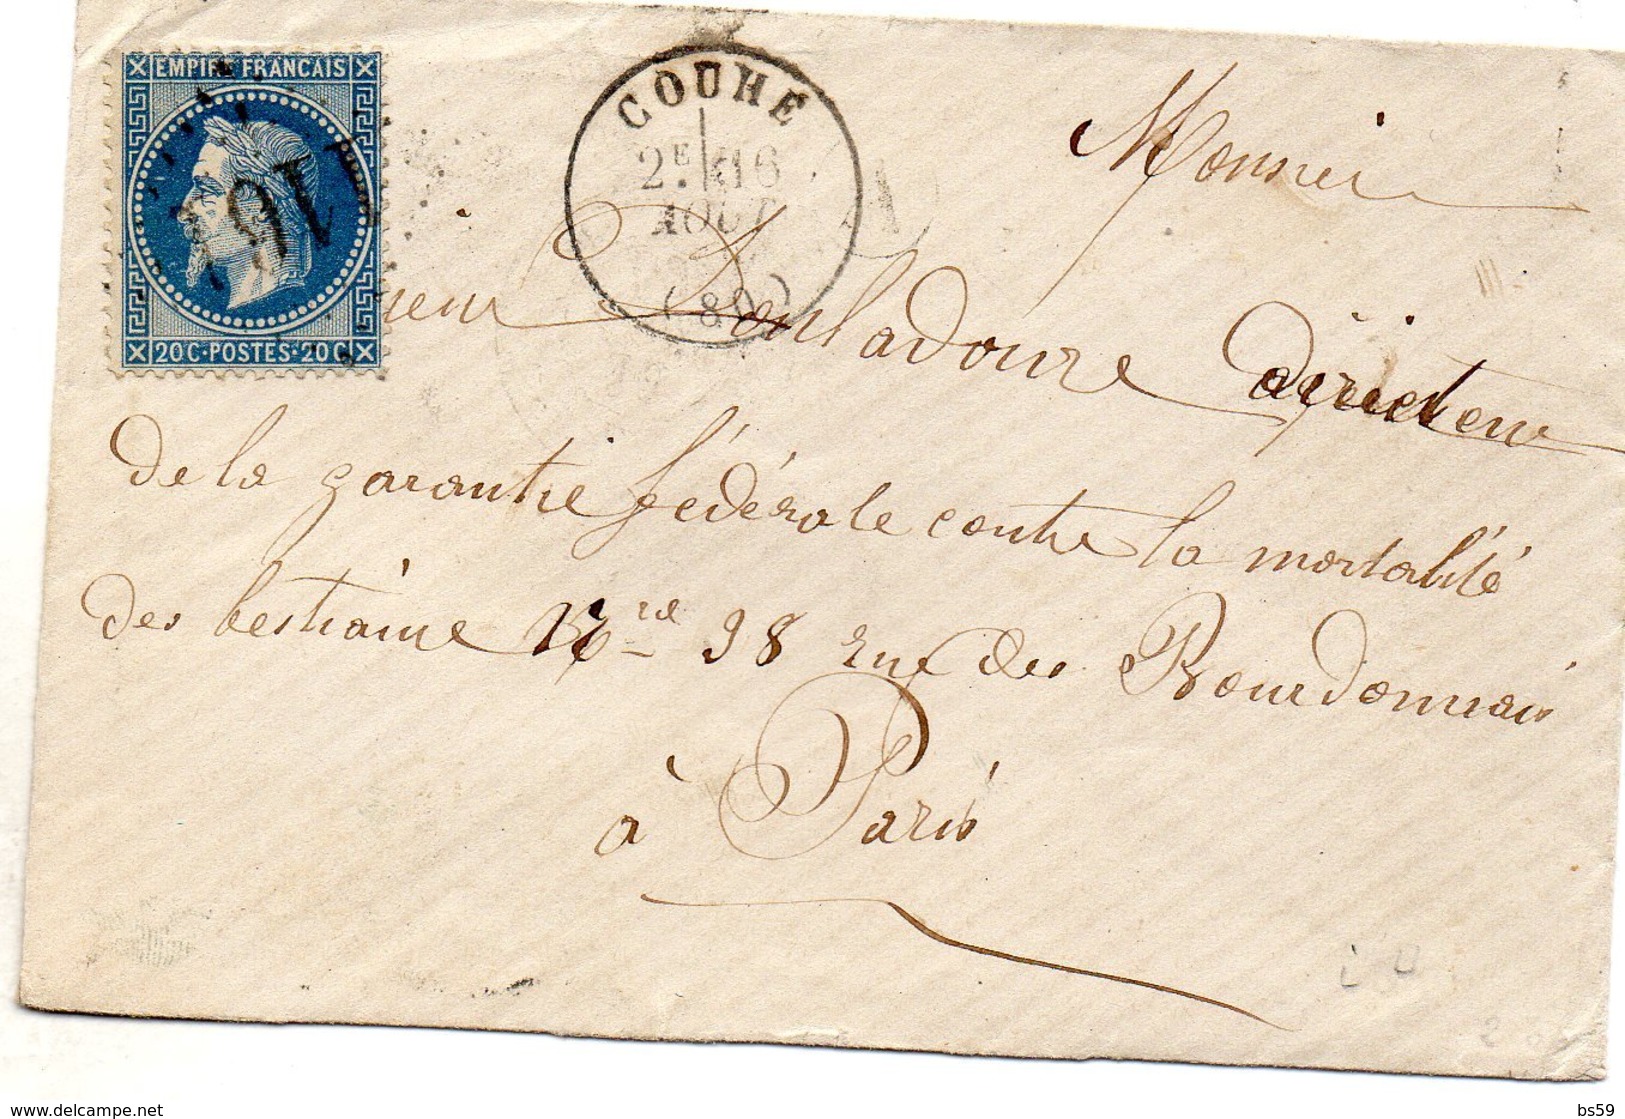 EMPIRE FRANCAIS
20C·POSTES·20C
COUHÉ
2E 16
AOUT
(80)
Monsieur
directeur
de la garantie fédérale contre la mortalité
des bestiaux 98 rue des Bourdonnais
à Paris
www.delcampe.net
bs59